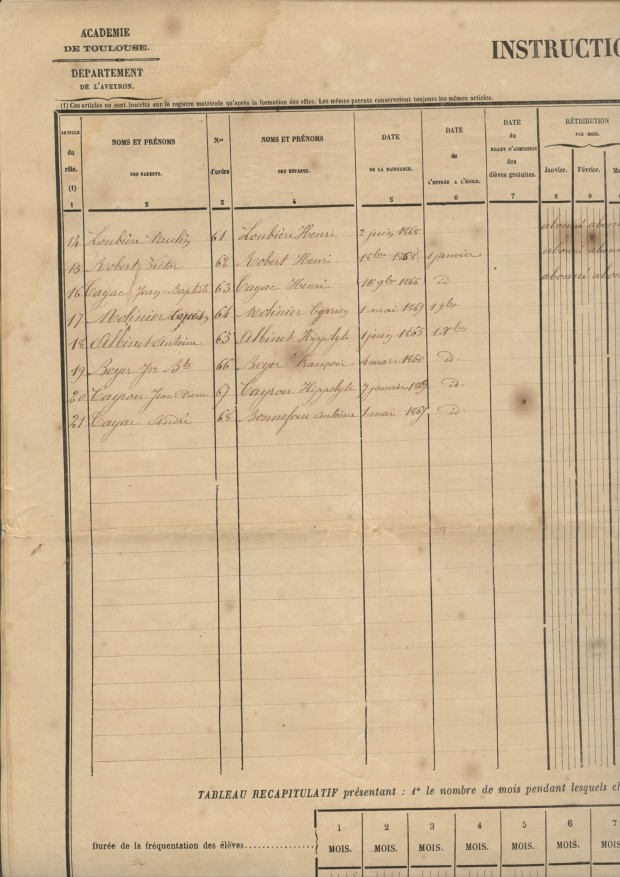 ACADEMIE
DE TOULOUSE.
DEPARTEMENT
DE L'AVEYRON.
INSTRUCTIO
(1) Ces articles ne sont inscrits sur le registre matricule qu'après la formation des rôles. Les mêmes parents conserveront toujours les mêmes articles.
ARTICLE du rôle. (1)
NOMS ET PRÉNOMS DES PARENTS.
Nos d'ordre
NOMS ET PRÉNOMS DES ENFANTS.
DATE DE LA NAISSANCE.
DATE de L'ENTRÉE A L'ÉCOLE.
DATE du BILLET D'ADMISSION des élèves gratuites.
RÉTRIBUTION PAR MOIS.
Janvier. Février. Ma
1 2 3 4 5 6 7 8 9
14 Loubière Paulin 61 Loubière Henri 2 juin 1868 abonné abonn
15 Robert Victor 62 Robert Henri 1868 1 janvier abonné abonn
16 Cayac Jean-Baptiste 63 Cayac Henri 16 9bre 1866 id abonné abon
17 Molinier Louis 64 Molinier 1 mai 1869 1 9bre
18 Albinet Antoine 65 Albinet Hippolyte 1 juin 1865 1 Xbre
19 Boyer Jn Bte 66 Boyer François 4 mars 1860 id.
20 Cayrou Jean Pierre 67 Cayrou Hippolyte 7 janvier 1869 id.
21 Cayac André 68 Bonnefous Antoine 1 mai 1869 id
TABLEAU RECAPITULATIF présentant : 1° le nombre de mois pendant lesquels ch
1 2 3 4 5 6 7
Durée de la fréquentation des élèves............... MOIS. MOIS. MOIS. MOIS. MOIS. MOIS. MOIS